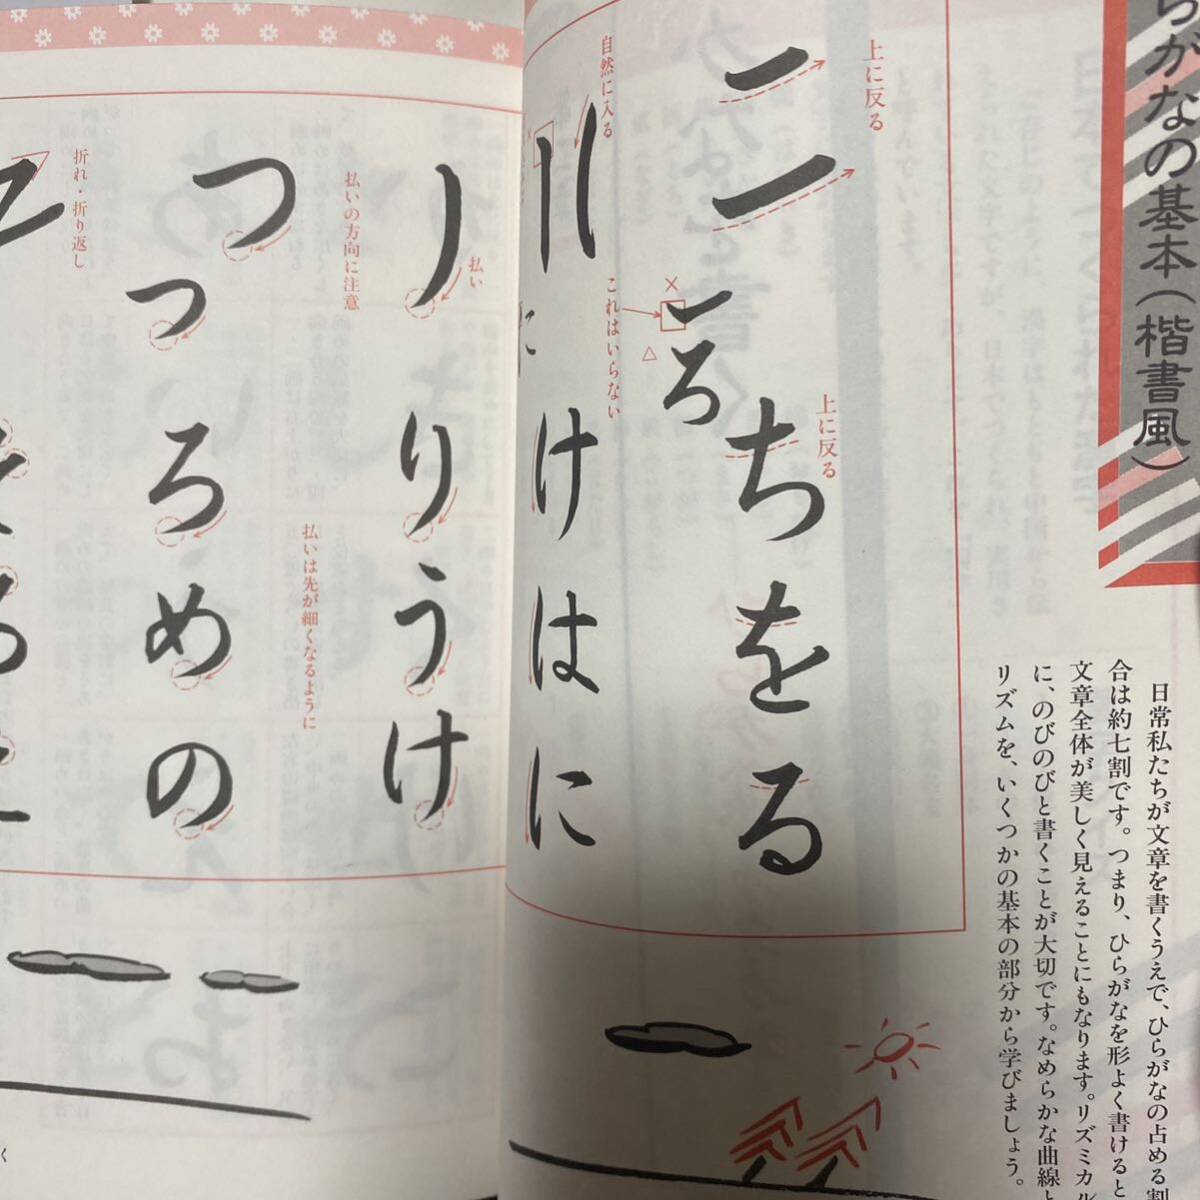 らがなの基本(楷書風)
日常私たちが文章を書くうえで、ひらがなの占める割
合は約七割です。つまり、ひらがなを形よく書けると
文章全体が美しく見えることにもなります。リズミカル
に、のびのびと書くことが大切です。なめらかな曲線
リズムを、いくつかの基本の部分から学びましょう。
上に反る
上に反る
ちをる
ろ
×
△
これはいらない
自然に入る
×
に
けはに
払い
りうけ
払いの方向に注意
払いは先が細くなるように
つ
つろめの
折れ・折り返し
く